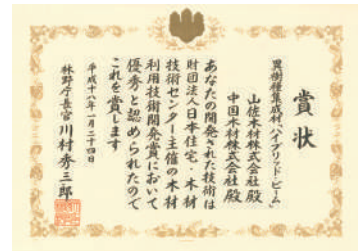 賞状
異樹種集成材「ハイブリッド・ビーム」
山佐木材株式会社殿
中国木材株式会社殿
あなたの開発された技術は
財団法人日本住宅・木材
技術センター主催の木材
利用技術開発賞において
優秀と認められたので
これを賞します
平成十八年一月二十四日
林野庁長官川村秀三郎